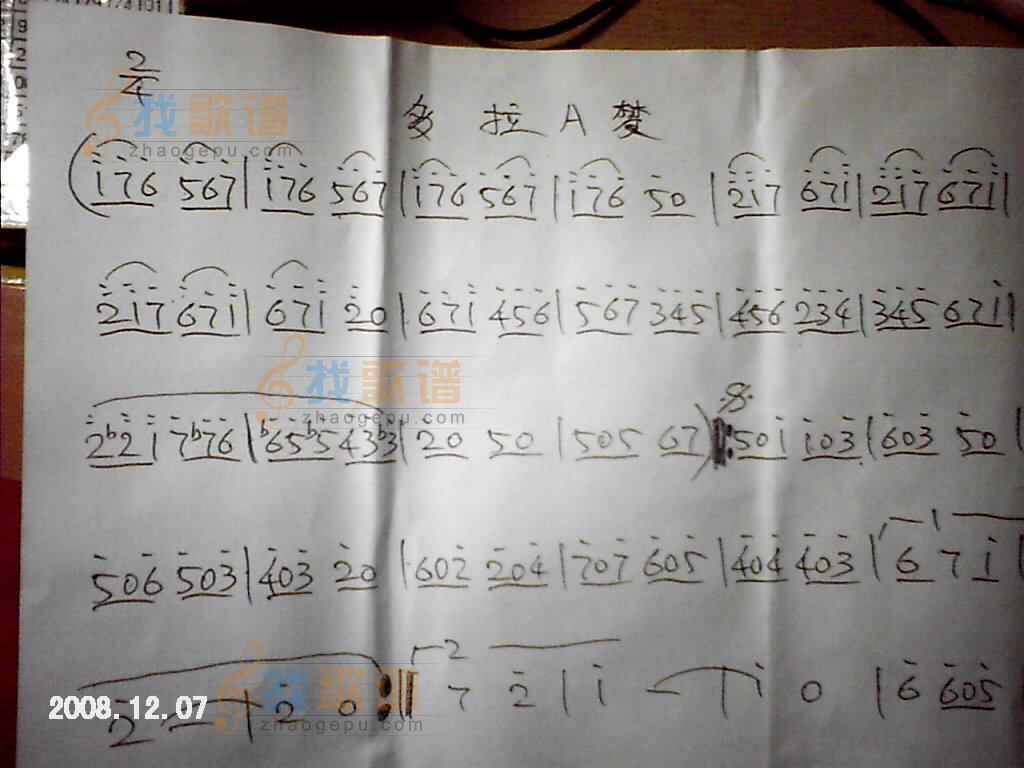 2/4
多 拉 A 梦
(176 567 | 176 567 | 176 567 | 176 50 | 217 671 | 217 671 |
217 671 | 671 20 | 671 456 | 567 345 | 456 234 | 345 671 |
2b21 7b76 | b65b5 43b3 | 20 50 | 505 67) ‖: 501 103 | 603 50 |
506 503 | 403 20 | 602 204 | 707 605 | 404 403 | 1 6 7 1 |
2 — | 2 0 :‖ 2 7 2 | 1 — | 1 0 | 6 605
找歌谱
zhaogepu.com
找歌谱
zhaogepu.com
找歌谱
zhaogepu.com
2008.12.07